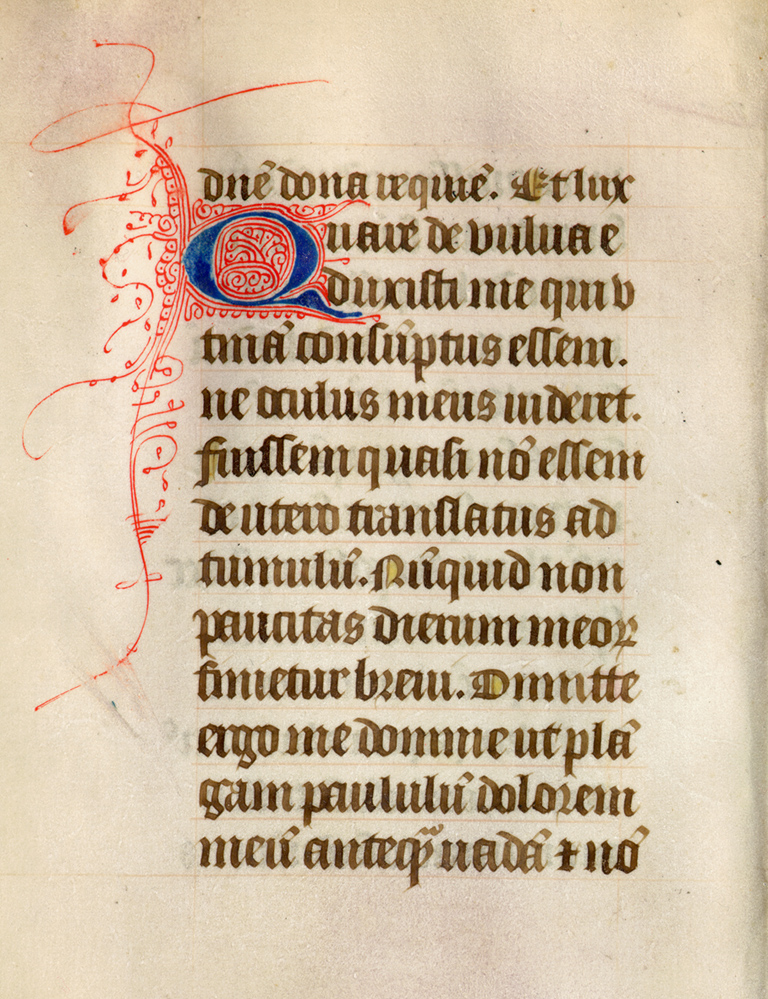 dnē dona requiē. Et lux
Quare de vulua e
duxisti me qui v
tinā consūptus essem.
ne oculus meus uideret.
fuissem quasi nō essem
de utero translatus ad
tumulū. Nūquid non
paucitas dierum meoꝝ
finietur breui. Dimitte
ergo me domine ut plā
gam paululū dolorem
meū anteqᷓ uadā ⁊ nō